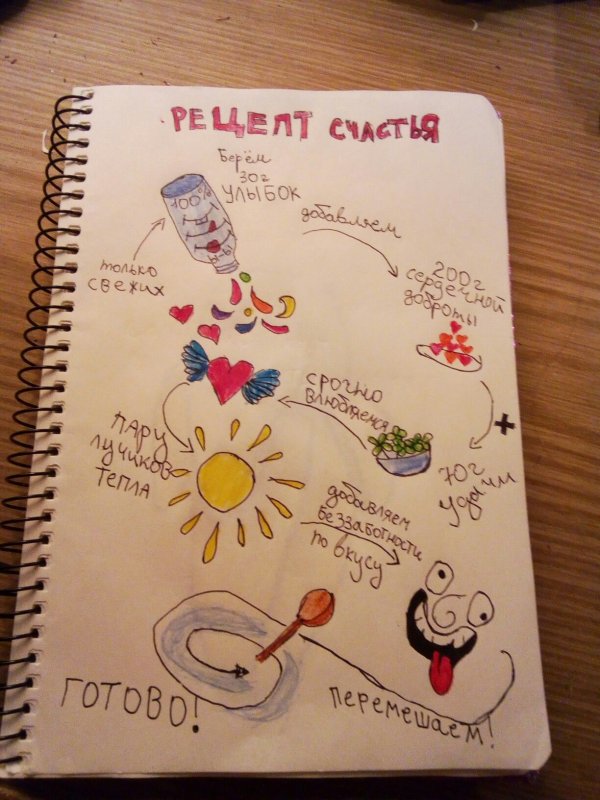 РЕЦЕПТ СЧАСТЬЯ
Берём
30г
УЛЫБОК
100%
только
свежих
добавляем
200г
сердечной
доброты
+
70г
удачи
срочно
влюбляемся
ПАРУ
ЛУЧИКОВ
ТЕПЛА
добавляем
беззаботности
по вкусу
перемешаем!
ГОТОВО!